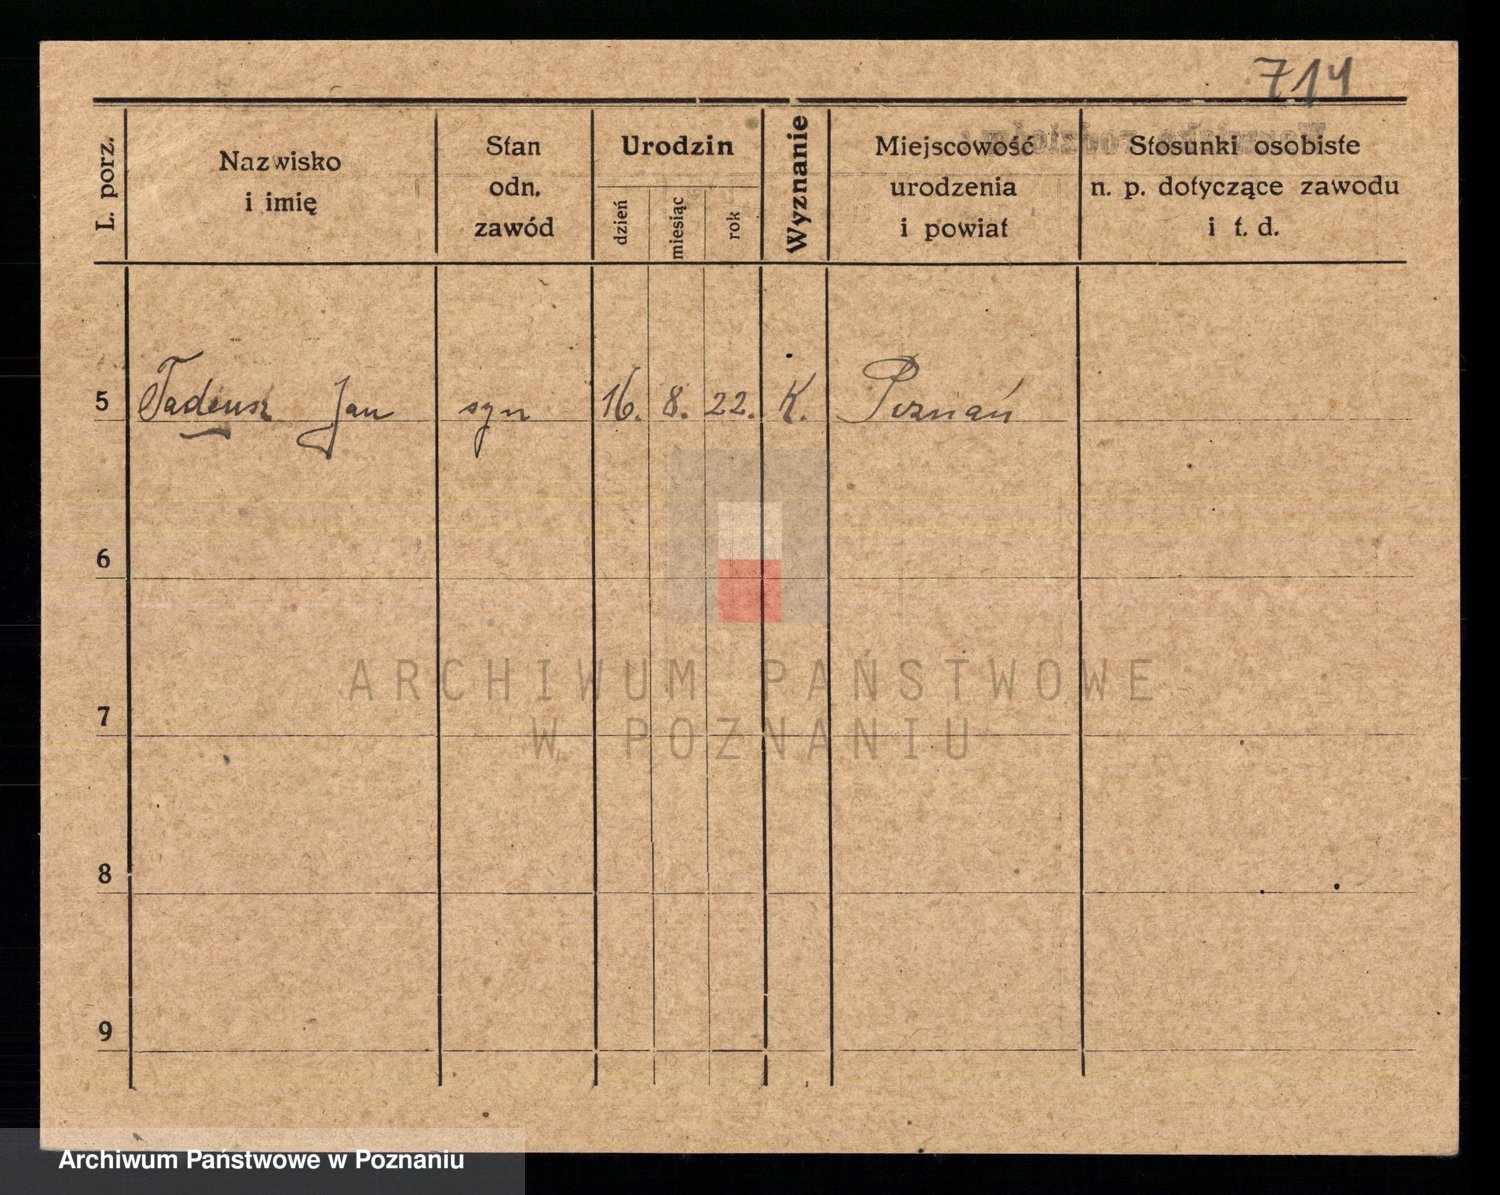 714
L. porz.
Nazwisko
i imię
Stan
odn.
zawód
Urodzin
dzień
miesiąc
rok
Wyznanie
Miejscowość
urodzenia
i powiat
Stosunki osobiste
n. p. dotyczące zawodu
i t. d.
5 Tadeusz Jan syn 16. 8. 22. K. Poznań
6
7
8
9
ARCHIWUM PAŃSTWOWE
W POZNANIU
Archiwum Państwowe w Poznaniu